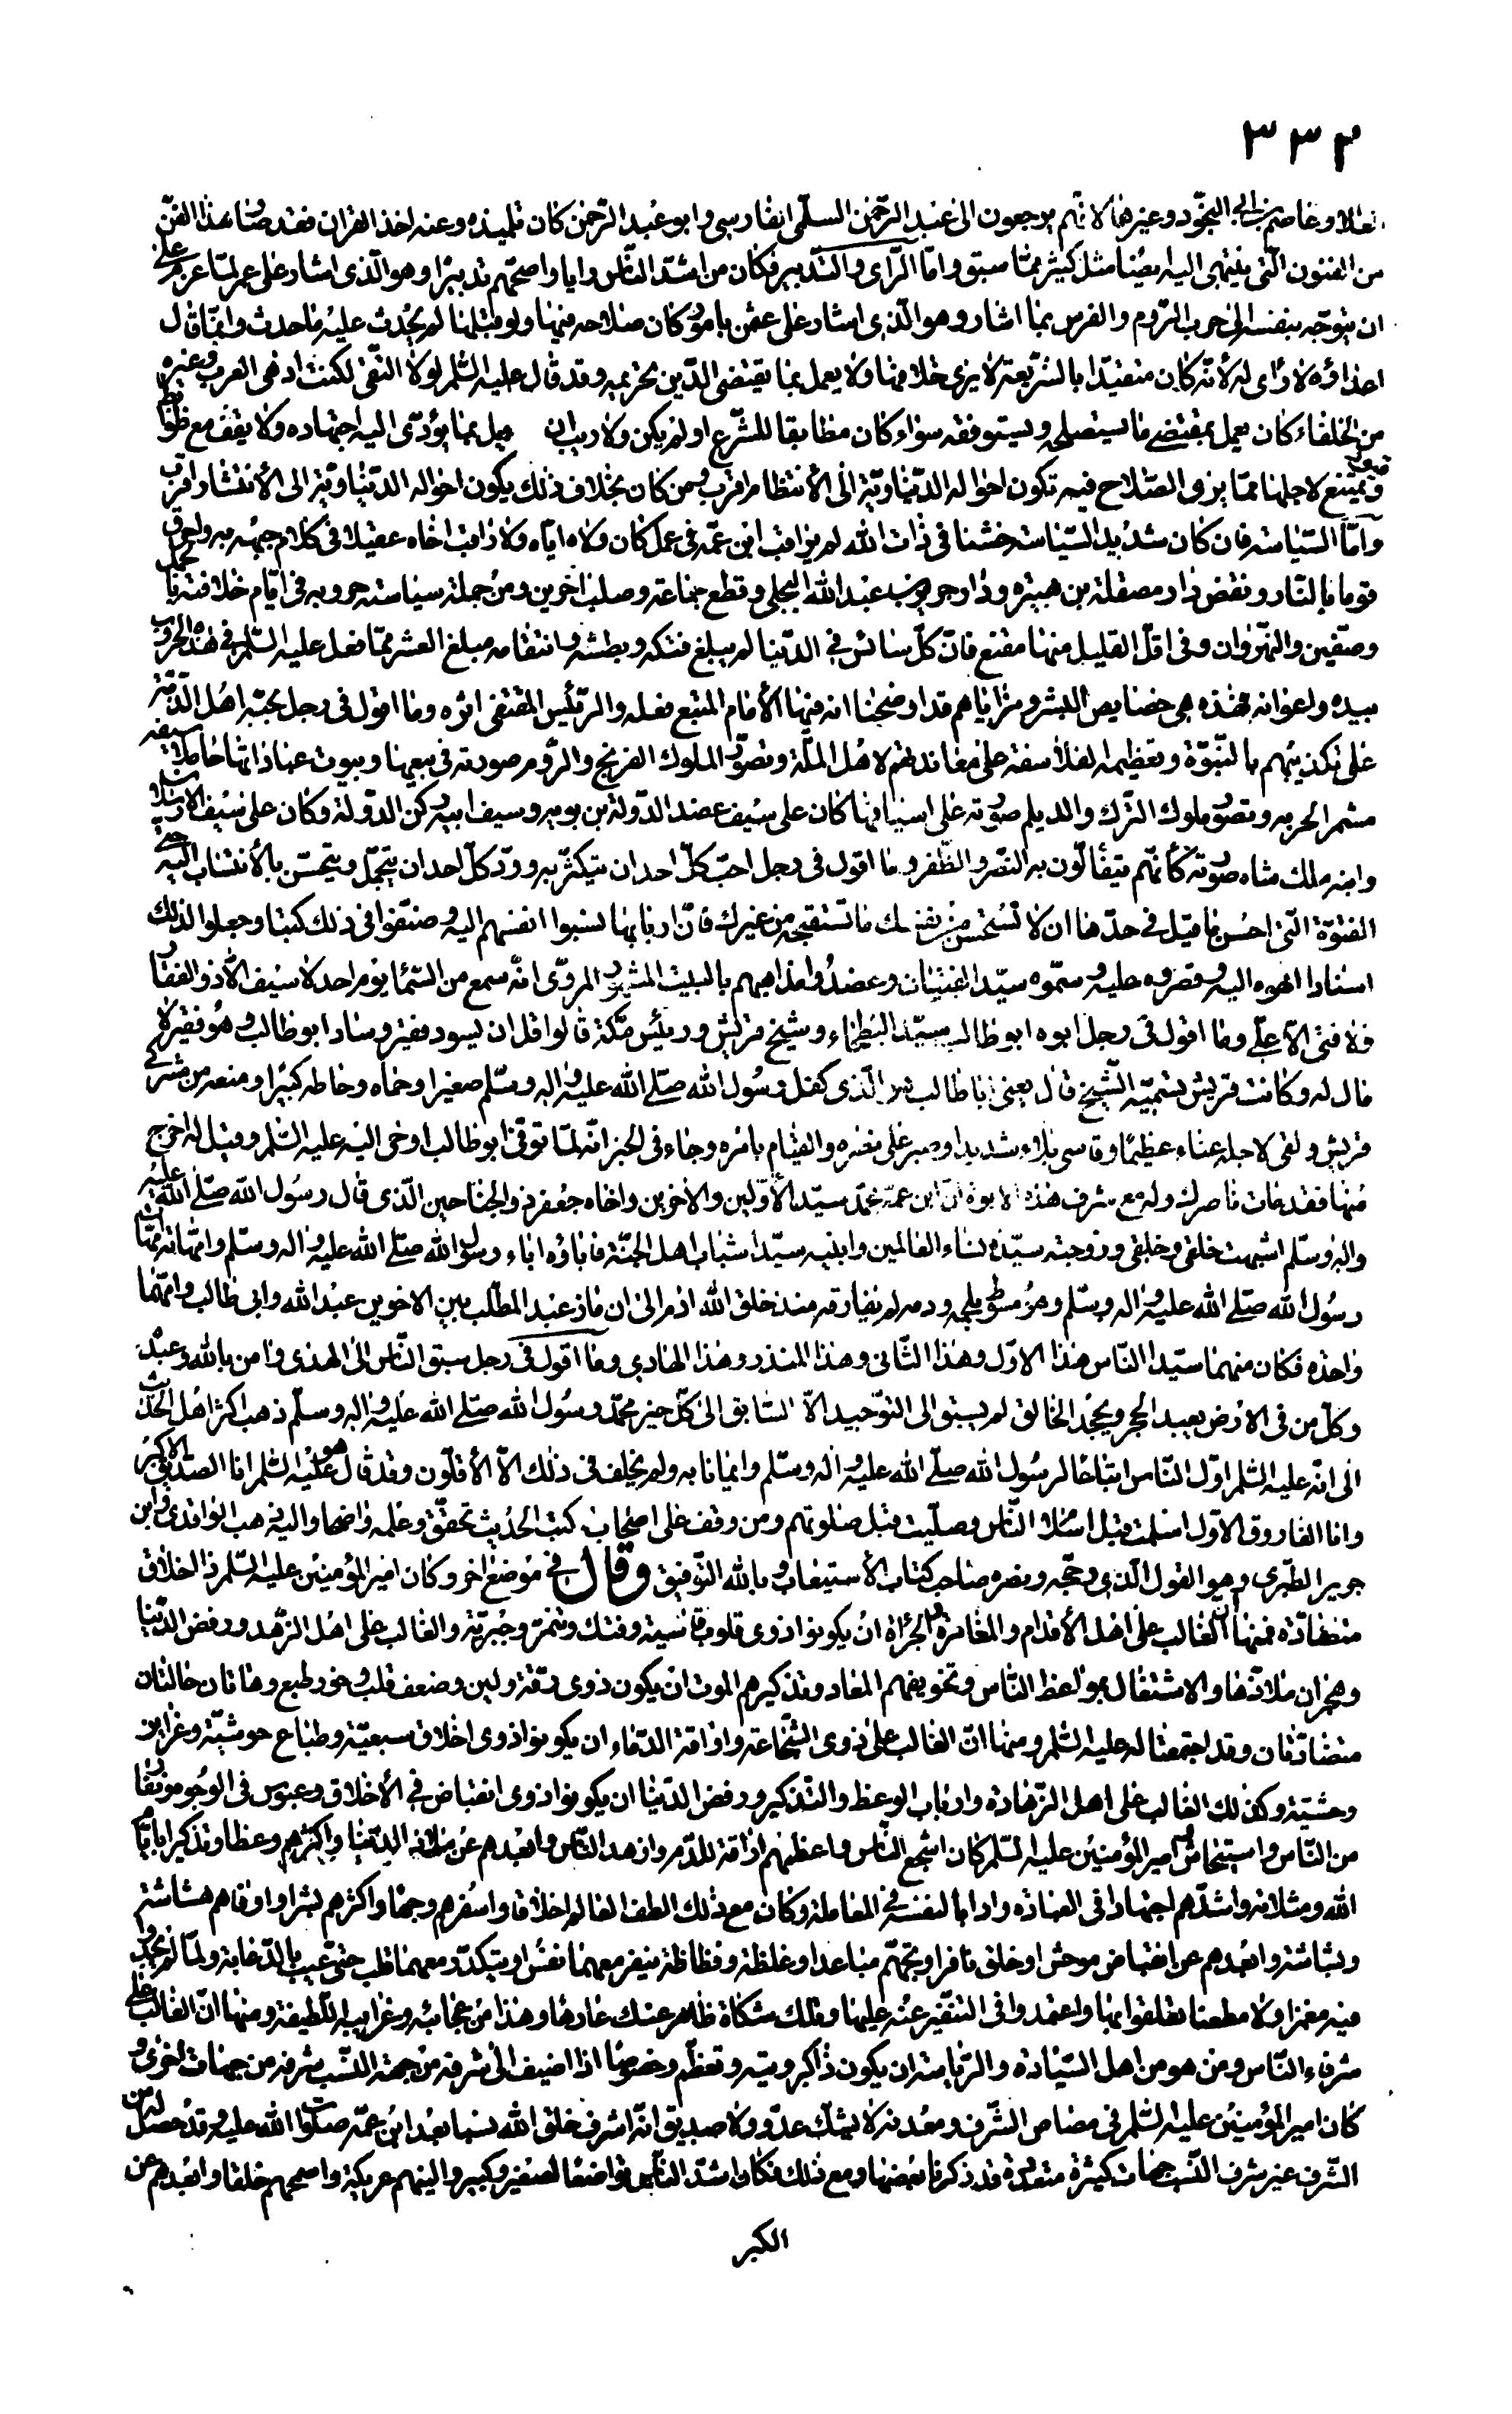 ٣٣٢
العلا وعاصم بن ابي النجود وغيرهما لانهم يرجعون الى عبد الرحمن السلمى القارى وابو عبد الرحمن كان تلميذه وعنه اخذ القران فقد صار هذا الفن
من الفنون التى ينتهى اليه ايضا مثل كثير مما سبق واما الراى والتدبير فكان من اشد الناس رايا واصحهم تدبيرا وهو الذى اشار على عمر لما عزم على
ان يتوجه بنفسه الى حرب الروم والفرس بما اشار وهو الذى اشار على عثمن بامور كان صلاحه فيها ولو قبلها لم يحدث عليه ما حدث وانما قال
اعداؤه لا راى له لانه كان متقيدا بالشريعة لا يرى خلافها ولا يعمل بما يقتضى الدين تحريمه وقد قال عليه السلم لولا التقى لكنت ادهى العرب وغيره
من الخلفاء كان يعمل بمقتضى ما يستصلحه ويستوفقه سواء كان مطابقا للشرع او لم يكن ولا ريب ان من يعمل بما يؤدى اليه اجتهاده ولا يقف مع ضوابط
وقيود يمتنع لاجلها مما يرى الصلاح فيه تكون احواله الدنياوية الى الانتظام اقرب ومن كان بخلاف ذلك يكون احواله الدنياوية الى الانتشار اقرب
واما السياسة فان كان شديد السياسة خشنا فى ذات الله لم يراقب ابن عمه فى عمل كان ولاه اياه ولا راقب اخاه عقيلا فى كلام جبهه به واحرق
قوما بالنار ونقض دار مصقلة بن هبيرة ودار جرير بن عبد الله البجلى وقطع جماعة وصلب اخرين ومن جملة سياسته حروبه فى ايام خلافته بالجمل
وصفين والنهروان وفى اقل القليل منها مقنع فان كل سائس فى الدنيا لم يبلغ فتكه وبطشه وانتقامه مبلغ العشر مما فعل عليه السلم فى هذه الحروب
بيده واعوانه فهذه هى خصايص البشر ومزاياهم قد اوضحنا انه فيها الامام المتبع فعله والرئيس المقتفى اثره وما اقول فى رجل يحبه اهل الذمة
على تكذيبهم بالنبوة وتعظيمه الفلاسفة على معاندتهم لاهل الملة وتصور الملوك الفرنج والروم صورته فى بيعها وبيوت عباداتها حاملا سيفه
مشمر الحربه وتصور ملوك الترك والديلم صورته على اسيافها كان على سيف عضد الدولة بن بويه وسيف ابيه ركن الدولة وكان على سيف الب ارسلان
وابنه ملك شاه صورته كأنهم يتفألون به النصر والظفر وما اقول فى رجل احب كل احد ان يتكثر به وود كل احد ان يتجمل ويتحسن بالانتساب اليه حتى
الفتوة التى احسن ما قيل فى حدها ان لا تستحسن من نفسك ما تستقبحه من غيرك فان اربابها نسبوا انفسهم اليه وصنفوا فى ذلك كتبا وجعلوا لذلك
اسنادا انهوه اليه وقصروه عليه وسموه سيد الفتيان وعضدوا مذاهبهم بالبيت المشهور المروى انه سمع من السماء يوم احد لا سيف الا ذو الفقار
ولا فتى الا على وما اقول فى رجل ابوه ابو طالب سيد البطحاء وشيخ قريش ورئيس مكة قالوا قل ان يسود فقير وساد ابو طالب وهو فقير لا
مال له وكانت قريش تسميه الشيخ قال يعنى ابا طالب هو الذى كفل رسول الله صلى الله عليه واله وسلم صغيرا وحماه وحاطه كبيرا ومنعه من مشركى
قريش ولقى لاجله عناء عظيما وقاسى بلاء شديدا وصبر على نصره والقيام بامره وجاء فى الخبر انه لما توفى ابو طالب اوحى اليه عليه السلم وقيل له اخرج
منها فقد مات ناصرك وله مع شرف هذه الابوة ان ابن عمه محمد سيد الاولين والاخرين واخاه جعفر ذو الجناحين الذى قال رسول الله صلى الله عليه
واله وسلم اشبهت خلقى وخلقى وزوجته سيدة نساء العالمين وابنيه سيدا شباب اهل الجنة فاباؤه اباء رسول الله صلى الله عليه واله وسلم وامهاته امهات
رسول الله صلى الله عليه واله وسلم وهو مسوط بلحمه ودمه لم يفارقه منذ خلق الله ادم الى ان ماز عبد المطلب بين الاخوين عبد الله وابى طالب وامهما
واحده فكان منهما سيدا الناس هذا الاول وهذا الثانى وهذا المنذر وهذا الهادى وما اقول فى رجل سبق الناس الى الهدى وامن بالله وعبده
وكل من فى الارض يعبد الحجر ويجحد الخالق لم يسبق الى التوحيد الا السابق الى كل خير محمد رسول الله صلى الله عليه واله وسلم ذهب اكثر اهل الحديث
الى انه عليه السلم اول الناس اتباعا لرسول الله صلى الله عليه واله وسلم وايمانا به ولم يخلف فى ذلك الا الاقلون وقد قال هو عليه السلم انا الصديق الاكبر
وانا الفاروق الاول اسلمت قبل اسلام الناس وصليت قبل صلوتهم ومن وقف على اصحاب كتب الحديث تحقق وعلمه واضحا واليه ذهب الواقدى وابن
جرير الطبرى وهو القول الذى رجحه ونصره صاحب كتاب الاستيعاب وبالله التوفيق وقال فى موضع اخر وكان امير المؤمنين عليه السلم ذا اخلاق
متضادة فمنها ان الغالب على اهل الاقدام والمغامرة والجرأة ان يكونوا ذوى قلوب قاسية وفتك وتنمر وجبرية والغالب على اهل الزهد ورفض الدنيا
وهجران ملاذها والاشتغال بمواعظ الناس وتخويفهم المعاد وتذكيرهم الموت ان يكون ذوى رقة ولين وضعف قلب وخور طبع وهاتان حالتان
متضادتان وقد اجتمعتا له عليه السلم ومنها ان الغالب على ذوى الشجاعة واراقة الدماء ان يكونوا ذوى اخلاق سبعية وطباع حوشية وغرايز
وحشية وكذلك الغالب على اهل الزهادة وارباب الوعظ والتذكير ورفض الدنيا ان يكونوا ذوى انقباض فى الاخلاق وعبوس فى الوجوه ونفار
من الناس واستيحاش وامير المؤمنين عليه السلم كان اشجع الناس واعظمهم اراقة للدم وازهد الناس وابعدهم عن ملاذ الدنيا واكثرهم وعظا وتذكيرا بايام
الله ومثلاته واشدهم اجتهادا فى العبادة وادابا لنفسه فى المعاملة وكان مع ذلك الطف العالم اخلاقا واسفرهم وجها واكثرهم بشرا واوفاهم هشاشة
وبشاشة وابعدهم عن انقباض موحش او خلق نافر او تجهم مباعد او غلظة وفظاظة ينفر معهما نفس او يتكدر معهما قلب حتى عيب بالدعابة ولما لم يجدوا
فيه مغمزا ولا مطعنا تعلقوا بها واعتمدوا فى التنفير عنه عليها وتلك شكاة ظاهر عنك عارها وهذا من عجائبه وغرايبه اللطيفة ومنها ان الغالب على
شرفاء الناس ومن هو من اهل السيادة والرياسة ان يكون ذا كبر وتيه وتعظم وخصوصا اذا اضيف الى شرفه من جهة النسب شرفه من جهات اخرى و
كان امير المؤمنين عليه السلم فى مصاص الشرف ومعدنه لا يشك عدو ولا صديق انه اشرف خلق الله نسبا بعد ابن عمه صلوات الله عليه وقد حصل له من
الشرف غير شرف النسب جهات كثيرة متعددة قد ذكرنا بعضها ومع ذلك فكان اشد الناس تواضعا لصغير وكبير والينهم عريكة واسمحهم خلقا وابعدهم عن
الكبر